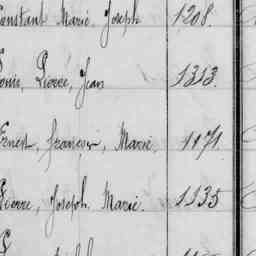 Constant Marie Joseph 1208.
Louis, Pierre, Jean 1313.
Ernest, François, Marie, 1171.
Pierre, Joseph, Marie. 1135